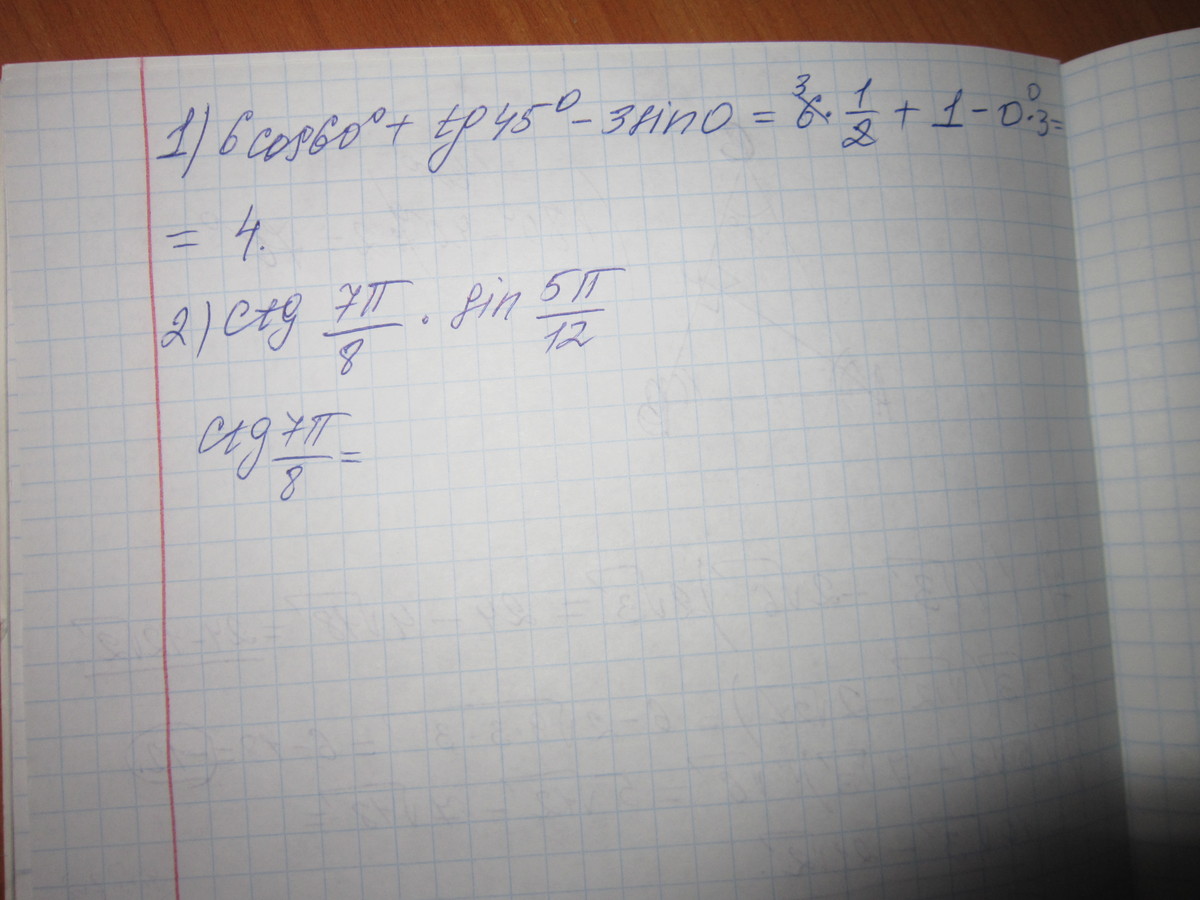 1) 6cos60° + tg 45° - 3sin0 = 6̸³ · 1/2 + 1 - 0° · 3 =
= 4.
2) ctg 7π/8 · sin 5π/12
ctg 7π/8 =